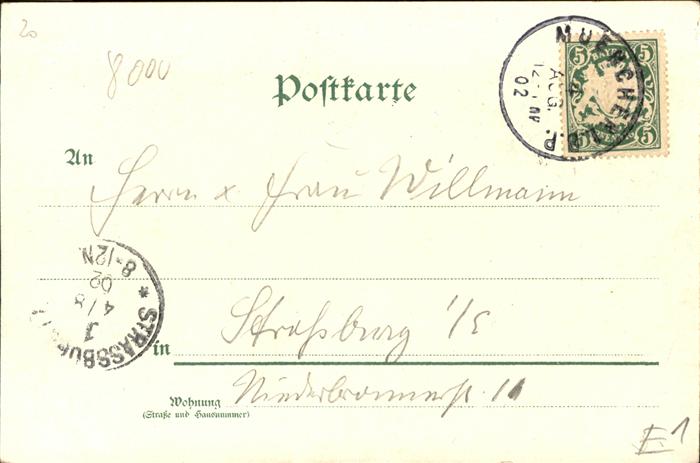 20
8000
Postkarte
MUENCHEN B.P.
AUG.
02
5 5
5 5
An
Herrn & Frau Willmann
STRASSBU
1
4/8
02
8-12N
in Straßburg i/E
Wohnung
(Straße und Hausnummer)
Niederbronnerst. 11
E1